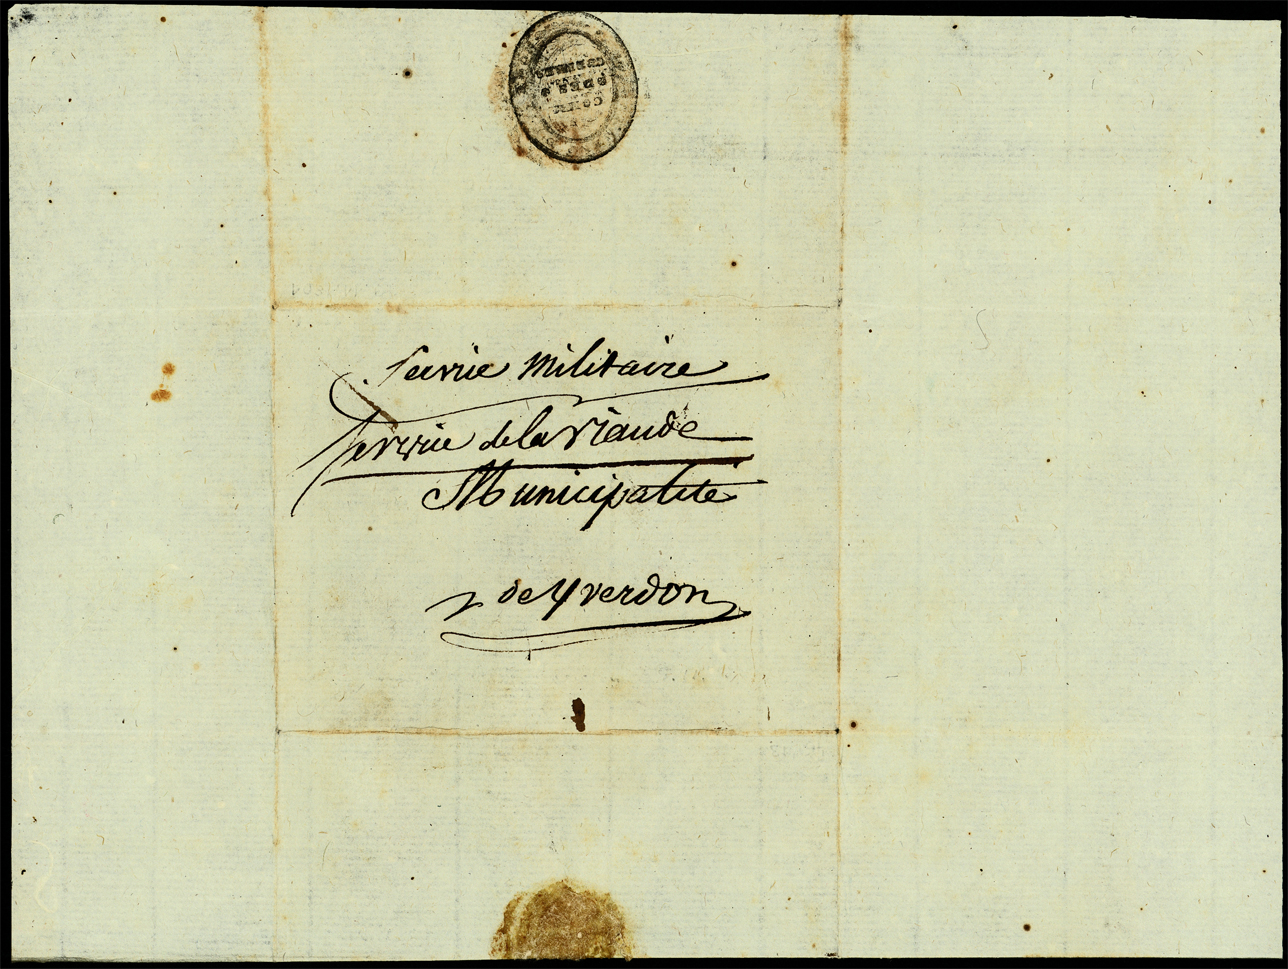 Service Militaire
Service de la Viande
Municipalité
de Yverdon